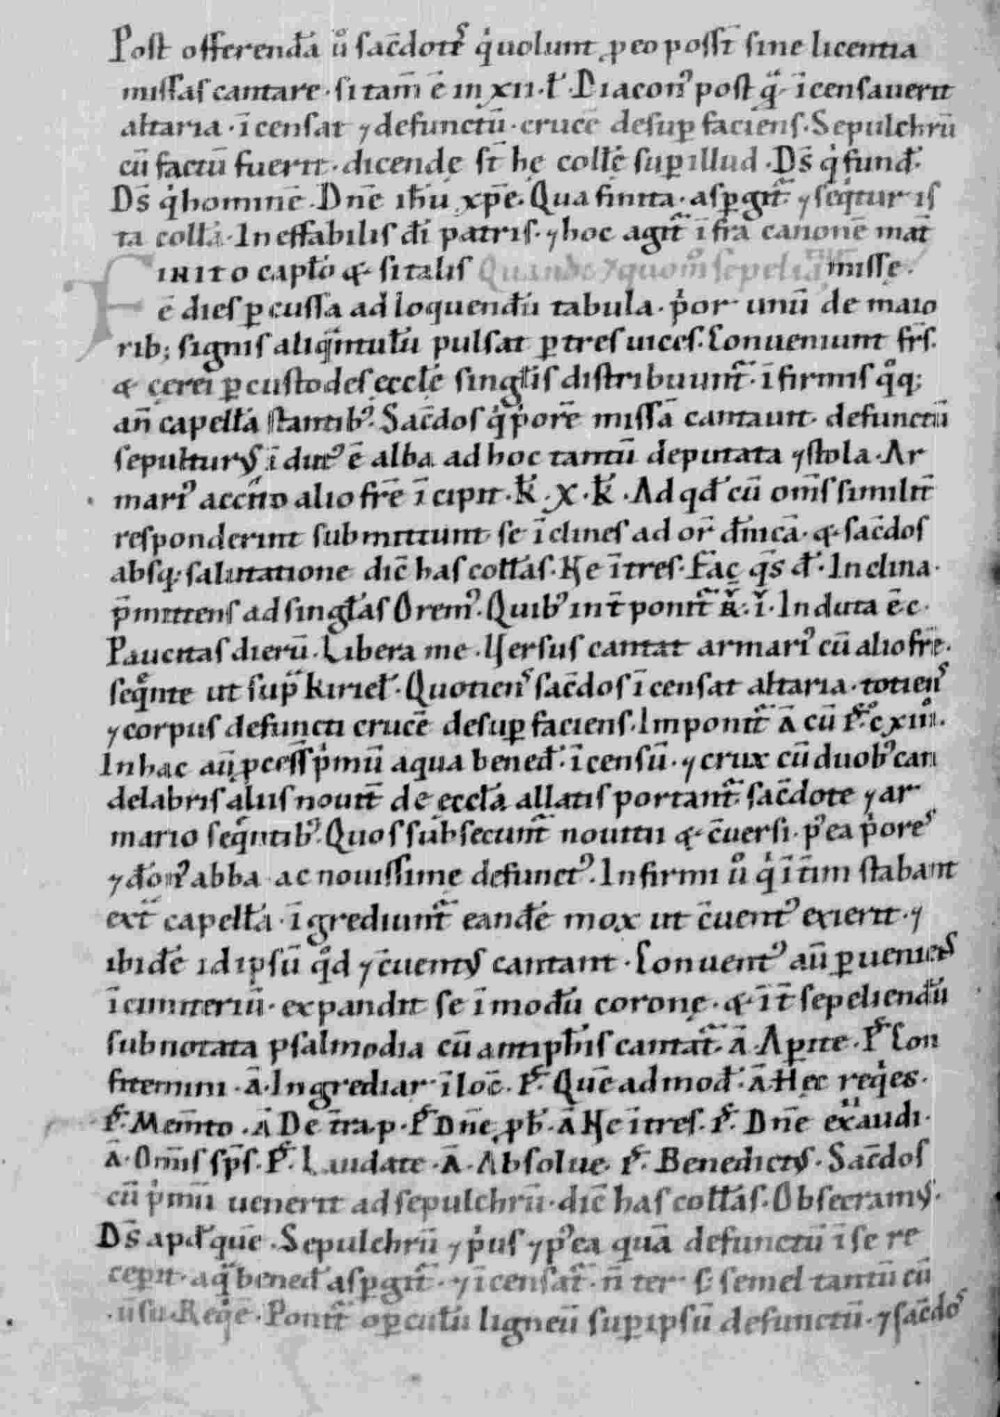 Post offerendā u̾ sac̄dotẽ q̍ uolunt p eo possт̄ sine licentia
missas cantare · si tam̄ ē in xii · ł · Diacon᾽ post q̄ · īcensauerit
altaria · īcensat ⁊ defunctū · crucē desup faciens · Sepulchrū
cū factū fuerit · dicendę st̄ hę coll̄ę sup illud · Ds̄ q̍ fund̄ ·
Ds̄ q̍ hominē · Dn̄e ih̄u xp̄e · Qua finita · aspgit̄ · ⁊ seq̄tur is
ta coll̄a · Ineffabilis dī patris · ⁊ hoc agit̄ īfra canonē mat̄
Finito capt̄o & si talis Quando ⁊ quom̊ sepeliat̄ missę ·
ē dies pcussa ad loquendū tabula · p̍or unū de maio
rib; signis aliq̄ntulū pulsat p tres uices · Conueniunt fr̄s ·
& cęrei p custodes ęccl̄ę singl̄is distribuunt̄ · īfirmis q̊q;
an̄ capell̄a stantib᾽ · Sac̄dos q̍ p̍ore missā cantauit defunctū
sepulturꝰ īdut᾽ ē alba ad hoc tantū deputata ⁊ stola · Ar
mari᾽ accito alio fr̄e īcipit · k̄ · x · k̄ · Ad qd̄ cū om̄s similit̄
responderint submittunt se īclines ad or̄ dn̄icā · & sac̄dos
absq; salutatione dic̄ has coll̄as · Ne ītres · Fac̄ qs̄ d̄ · Inclina ·
p̄mittens ad singl̄as Orem᾽ · Quib᾽ int̄ponit̄ ℟ · i · Induta ē c ·
Paucitas dierū · Libera me · Uersus cantat armari᾽ cū alio fr̄e ·
seq̄nte ut sup̄ kiriel̄ · Quotiens̾ sac̄dos īcensat altaria · totiens̾
⁊ corpus defuncti crucē desup faciens · Imponit̄ ā cū p̄s̊ cxiii ·
In hac aū pcess̄ p̍mū aqua bened̄ · īcensū · ⁊ crux cū duob᾽ can
delabris aliis nouit̄ de ęccl̄a allatis portant̄ sac̄dote ⁊ ar
mario seq̄ntib᾽ · Quos subsecunt̄ nouitii & c̄uersi · p᾽ea p̍ores̾
⁊ dōn᾽ abba ac nouissime defunct᾽ · Infirmi u̾ q̍ īt̄im stabant
ext̄ capell̄a · īgrediunt̄ eandē mox ut c̄uent᾽ exierit · ⁊
ibidē id ipsū q̊d ⁊ c̄uentꝰ cantant · Conuent᾽ aū puenies̾
ī cimiteriū · expandit se ī modū coronę · & īt̄ sepeliendū
subnotata psalmodia cū antiph̄is cantat̄ · ā · Apite · p̄s · Con
fitemini · ā · Ingrediar · ī loc̄ · p̄s · Quē ad mod̄ · ā · Hęc req̍es ·
p̄s · Mem̄to · ā De t̄ra p · p̄s Dn̄e pb̄ · ā Ne ītres · p̄s · Dn̄e exaudi ·
ā · Om̄is sps̄ · p̄s · Laudate · ā · Absolue p̄s · Benedictꝰ · Sac̄dos
cū p̍mū uenerit ad sepulchrū · dic̄ has coll̄as · Obsecramꝰ ·
Ds̄ apd̄ quē · Sepulchrū ⁊ p̍us ⁊ p᾽ea quā defunctū ī se re
cepit · aq̄ bened̄ aspgit̄ · ⁊ īcensat̄ · n̄ ter · s; semel tantū cū
ūsu · Reqē · Ponit̄ opculū ligneū sup ipsū defunctū · ⁊ sac̄dos̾